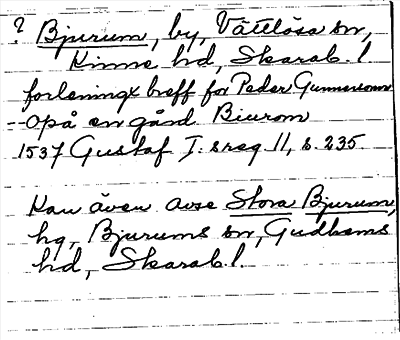 ? Bjurum, by, Vättlösa sn,
Kinne hd, Skarab. l
forleningx breff för Peder Gunnersonn
--opå en gård Biurom
1537 Gustaf I:s reg. 11, s. 235.
Kan även avse Stora Bjurum,
hg, Bjurums sn, Gudhems
hd, Skarab. l.